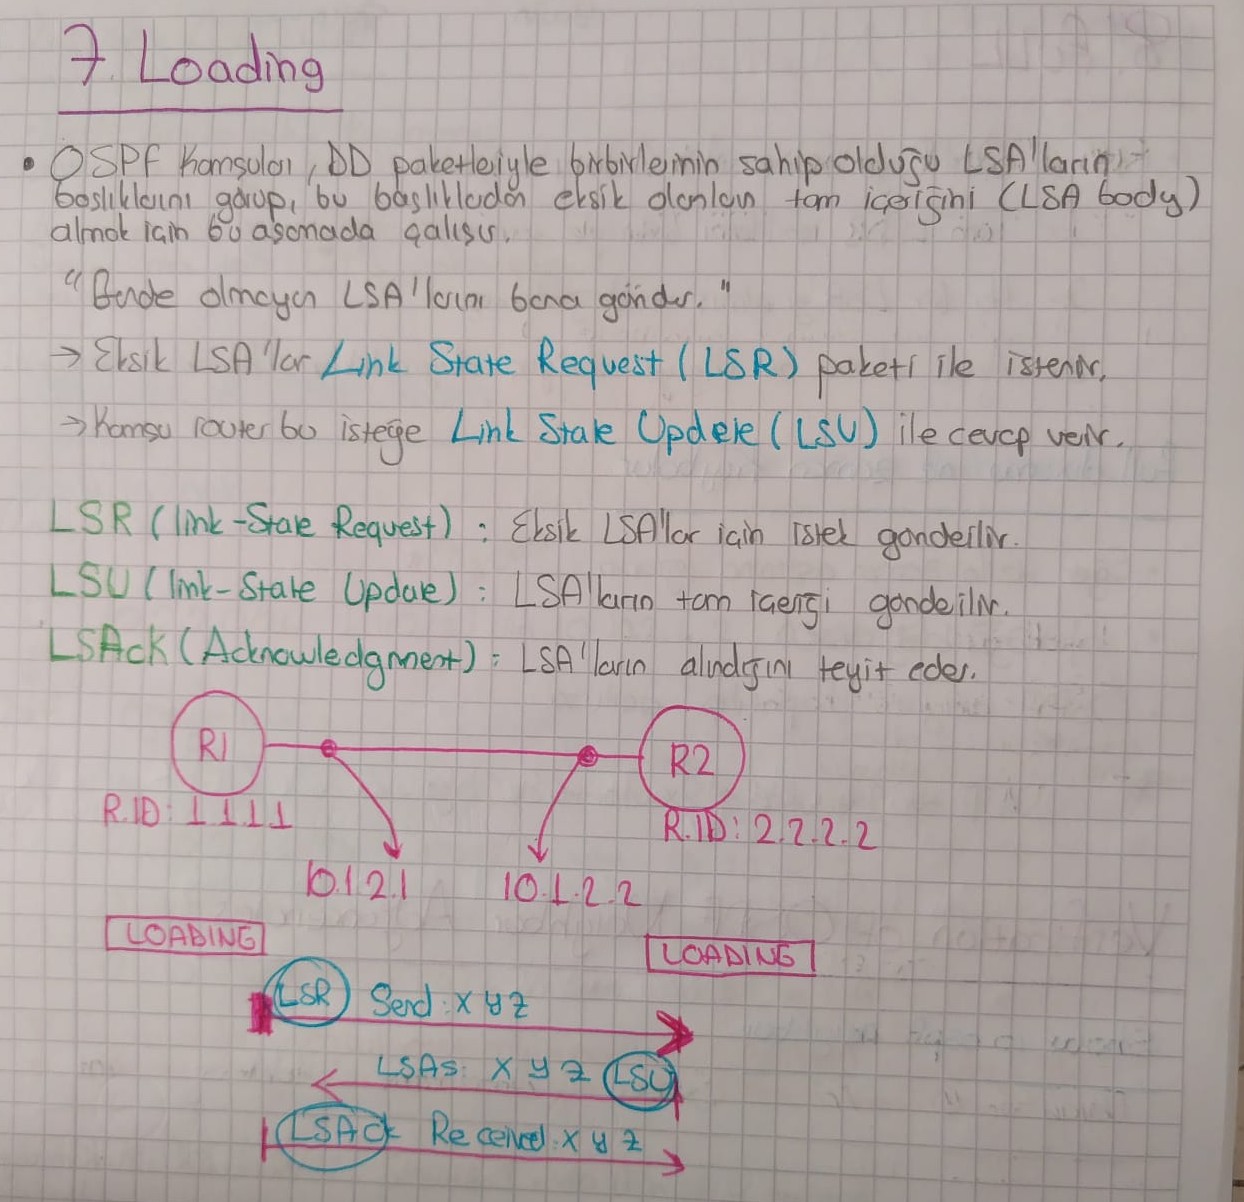 7. Loading
• OSPF komşuları, DD paketleriyle birbirlerinin sahip olduğu LSA'ların
başlıklarını görüp, bu başlıklardan eksik olanların tam içeriğini (LSA body)
almak için bu aşamada çalışır.
"Bende olmayan LSA'larını bana gönder."
→ Eksik LSA'lar Link State Request (LSR) paketi ile istenir.
→ Komşu router bu isteğe Link State Update (LSU) ile cevap verir.
LSR (link-State Request) : Eksik LSA'lar için istek gönderilir.
LSU (link-State Update) : LSA'ların tam içeriği gönderilir.
LSAck (Acknowledgment) : LSA'ların alındığını teyit eder.
R1 R2
R.ID: 1.1.1.1 R.ID: 2.2.2.2
10.1.2.1 10.1.2.2
LOADING LOADING
LSR Send: X Y Z
LSAs: X Y Z LSU
LSACK Received: X Y Z